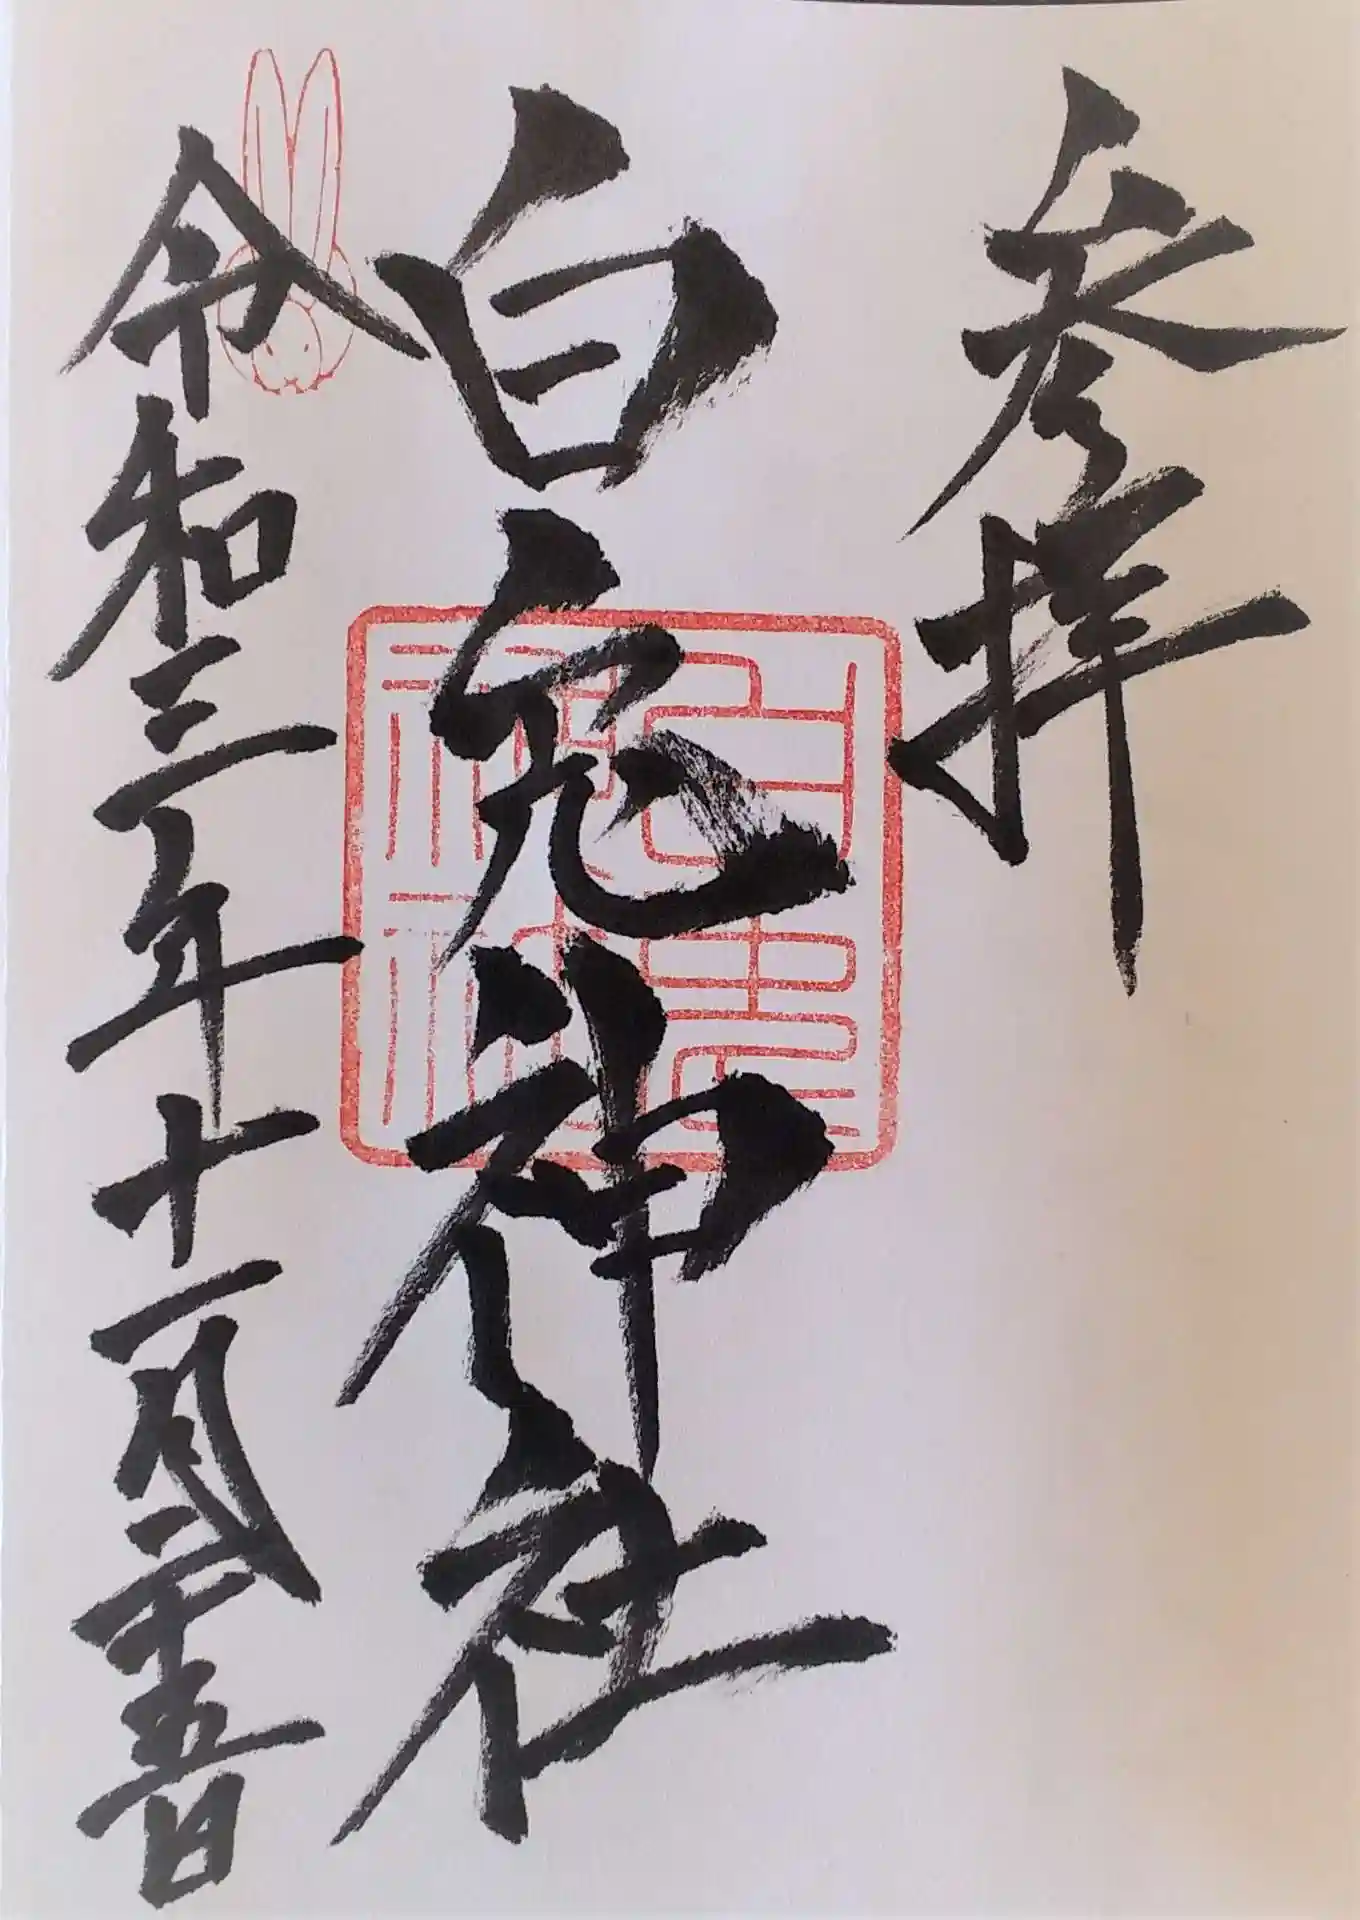 参拝
白兎神社
令和三年十一月二十五日
白兎神社